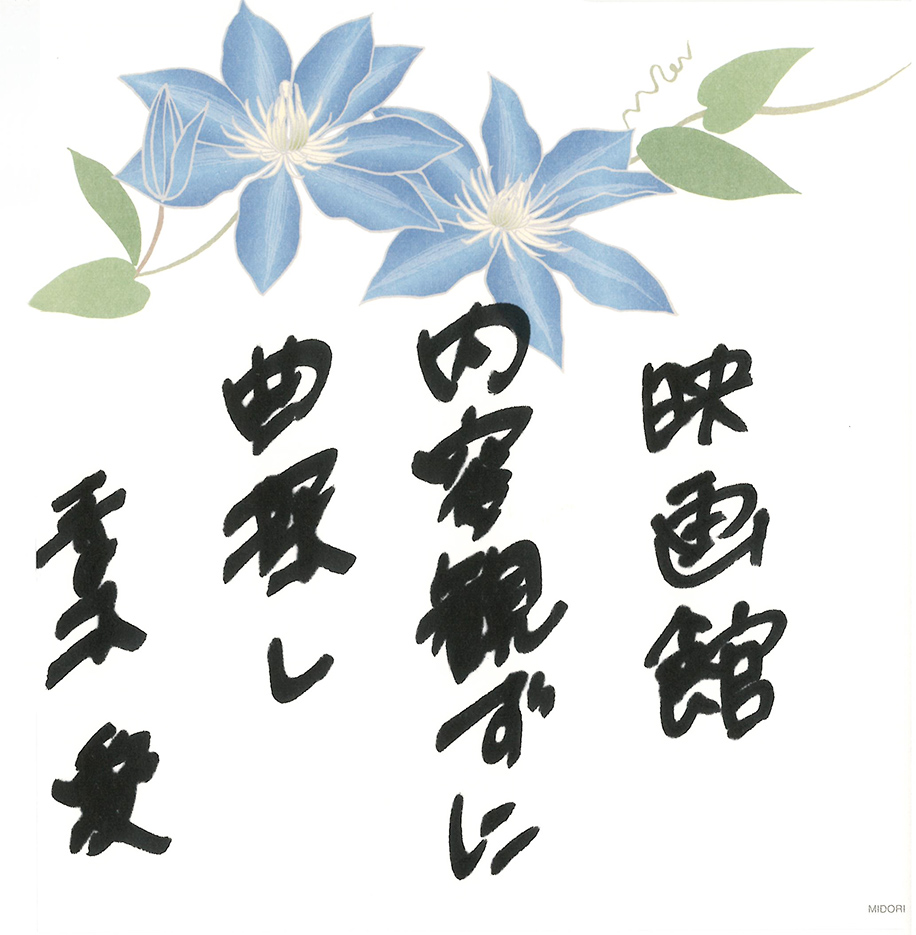 映画館
内容観ずに
曲探し
MIDORI